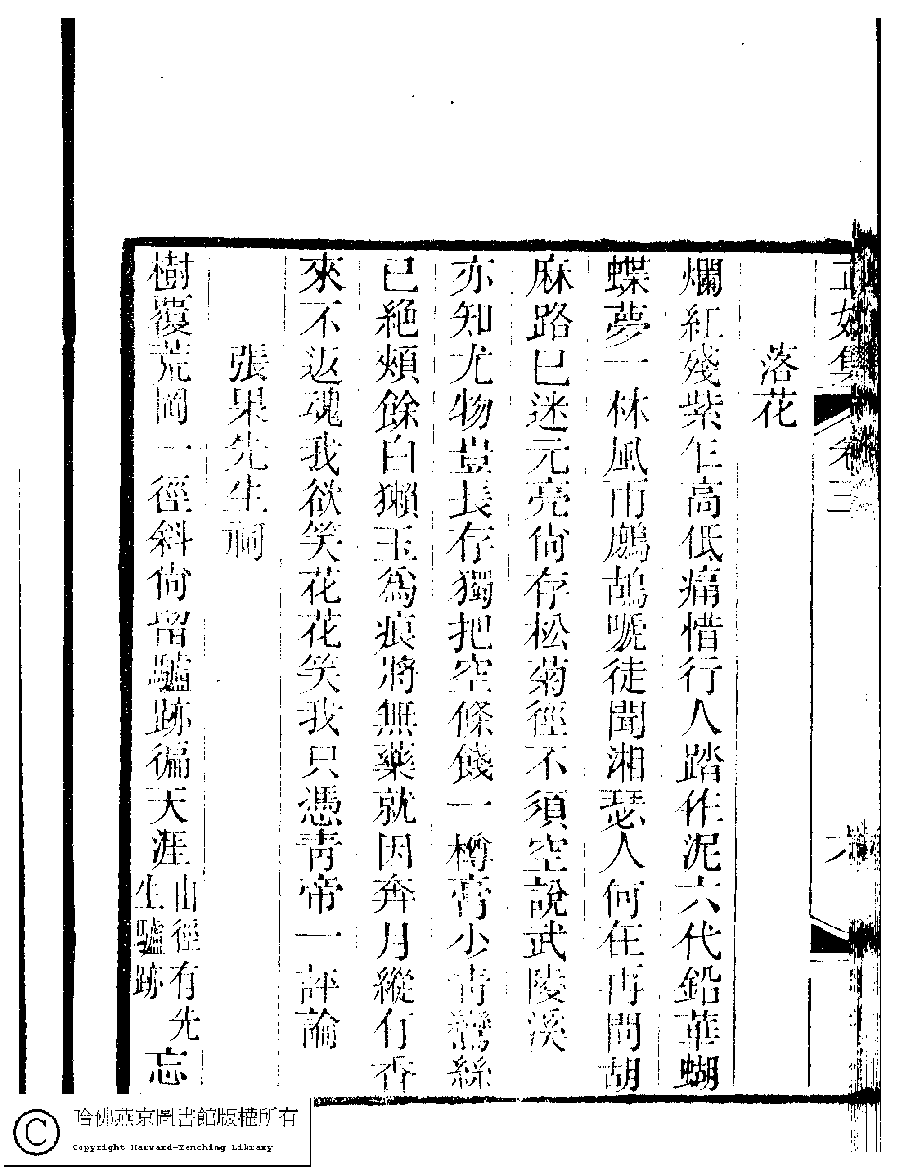 如集 卷三
落花
爛紅殘紫乍高低痛惜行人踏作泥六代鉛華蝴
蝶夢一林風雨鷓鴣嗁徒聞湘瑟人何在再問胡
麻路已迷元亮尙存松菊徑不須空說武陵溪
亦知尤物豈長存獨把空條餞一樽膏少靑鸞絲
已絕頰餘白獺玉爲痕將無藥就因奔月縱有香
來不返魂我欲笑花花笑我只憑靑帝一評論
張果先生祠
樹覆荒岡一徑斜尙留驢跡徧天涯山徑有先生驢跡忘
哈佛燕京圖書館版權所有
Copyright Harvard-Yenching Library